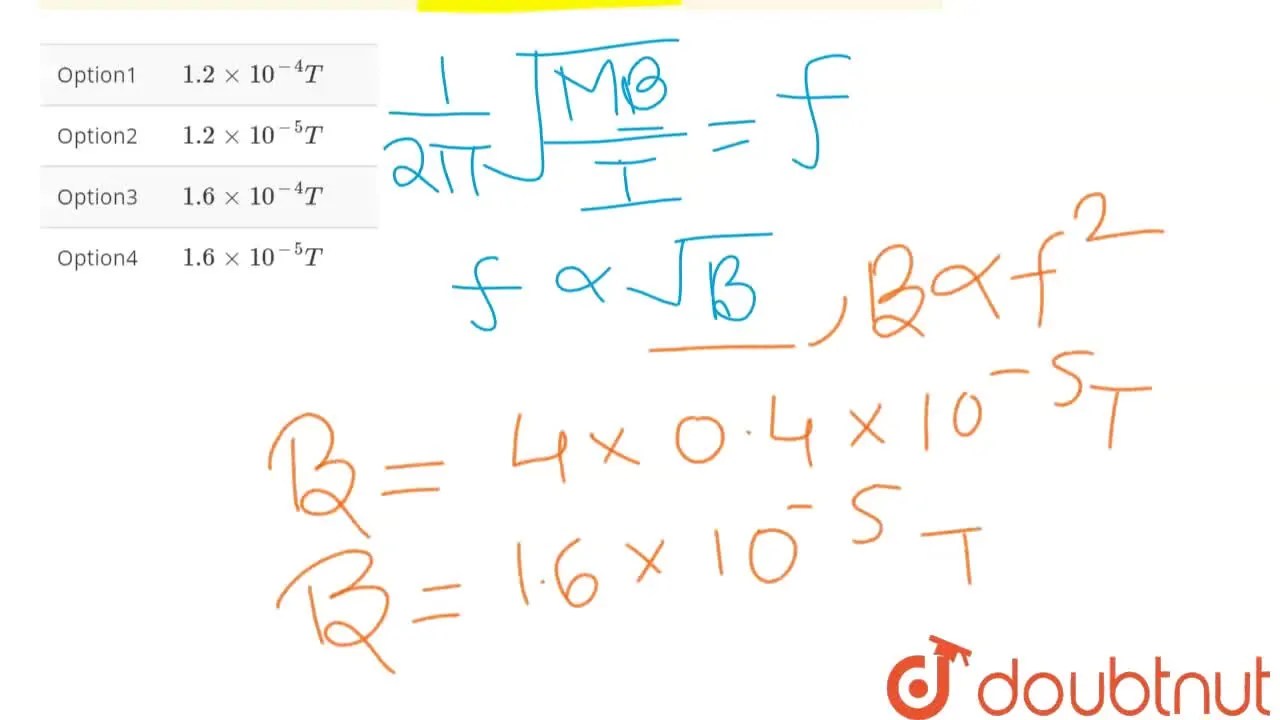 Option1 1.2 × 10⁻⁴T
Option2 1.2 × 10⁻⁵T
Option3 1.6 × 10⁻⁴T
Option4 1.6 × 10⁻⁵T
1/2π √(MB/I) = f
f ∝ √B , B ∝ f²
B = 4 × 0.4 × 10⁻⁵ T
B = 1.6 × 10⁻⁵ T
doubtnut